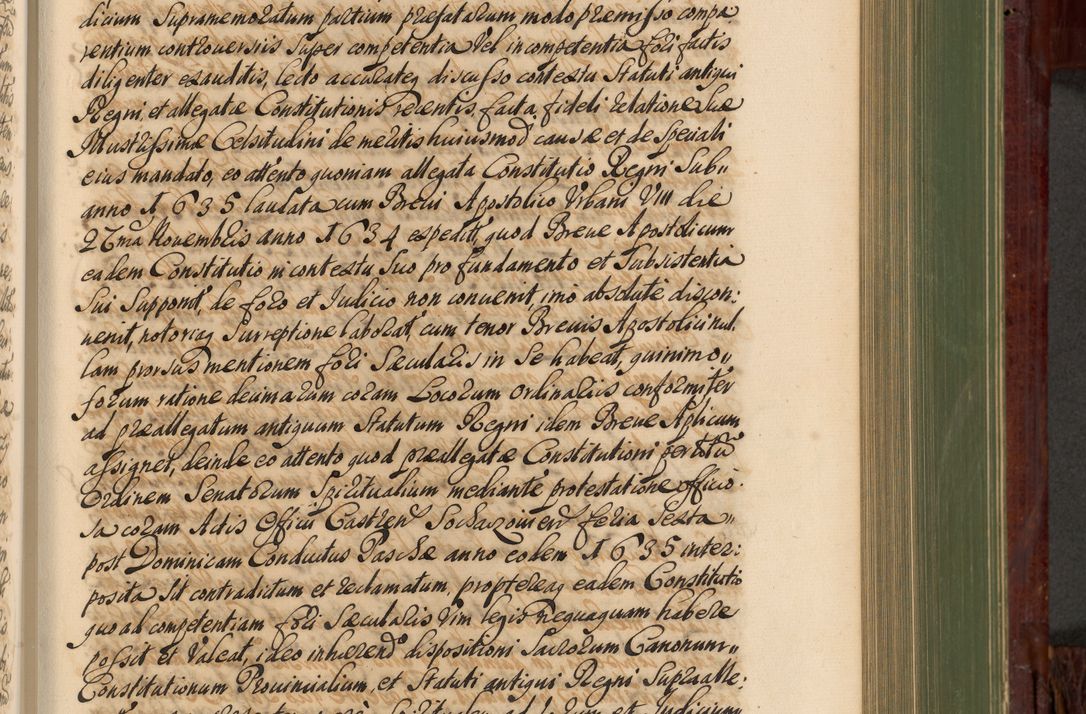 dicium Supramemoratum partium præfatarum modo præmisso compa
rentium controversiis super competentia vel incompetentia fori factis
diligenter exauditis, lecto accurateq discusso contextu Statuti antiqui
Regni, et allegatæ Constitutionis recentis, facta fideli relatione Suæ
Illustrissimæ Celsitudini de meritis huiusmod causæ et de speciali
eius mandato, eo attento quoniam allegata Constitutio Regni sub
anno 1635 laudata cum Brevi Apostolico Urbani VIII die
27ma Novembris anno 1634 expedit, quod Breve Apostolicum
eadem Constitutio in contextu suo pro fundamento et subsistentia
sui supponit, de foro et Iudicio non convenit, imò absolutè discon:
venit, notoriaq surreptione laborat, cum tenor Brevis Apostolici nul
lam prorsus mentionem fori sæcularis in se habeat, quinimo
forum ratione decimarum coram Locorum Ordinariis conformiter
ad præallegatum antiquum Statutum Regni idem Breve Aplicum
assignet, deinde eo attento quod præallegatæ Constitutioni per totū
Ordinem Senatorum Spiritualium mediante protestatione officio
sa coram Actis Officii Castren Sochazovien feria sexta
post Dominicam Conductus Paschæ anno eodem 1635 inter:
posita sit contradictum et reclamatum, proptereaq eadem Constitutio
quo ad competentiam fori sæcularis vim legis nequaquam habere
possit et valeat, ideo inhærend dispositioni Sacrorum Canonum
Constitutionum Provincialium, et Statuti antiqui Regni supraalle: